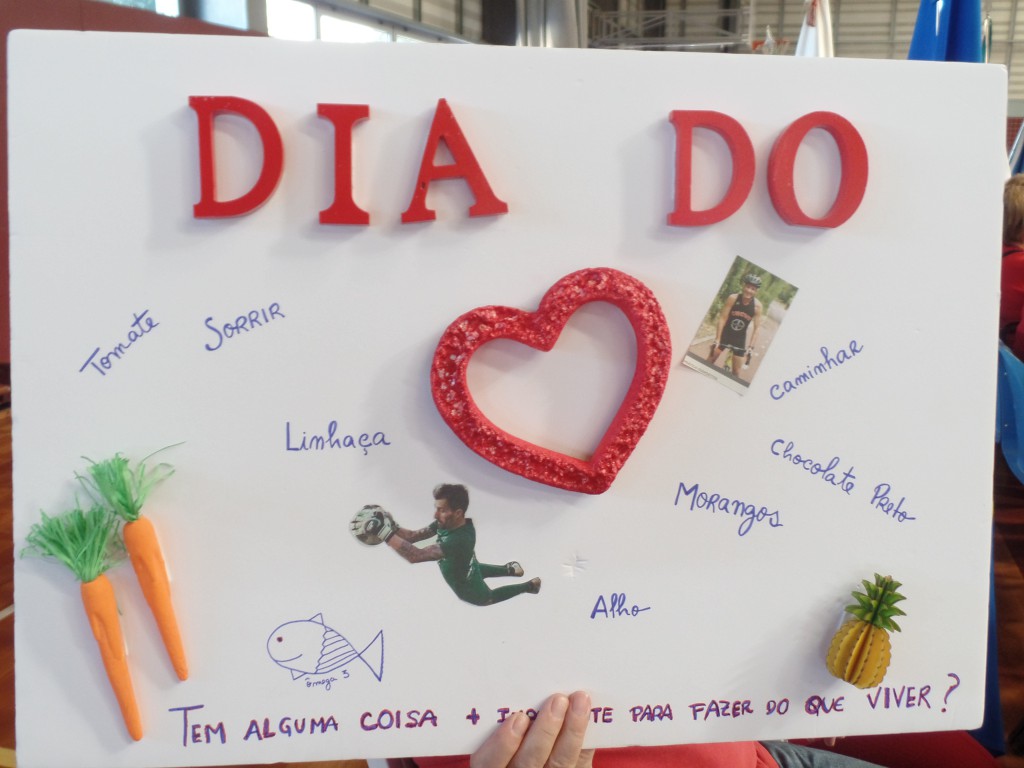 DIA DO
Tomate
SORRIR
caminhar
Linhaça
Chocolate Preto
MORANGOS
Alho
ômega 3
TEM ALGUMA COISA + PARA FAZER DO QUE VIVER?